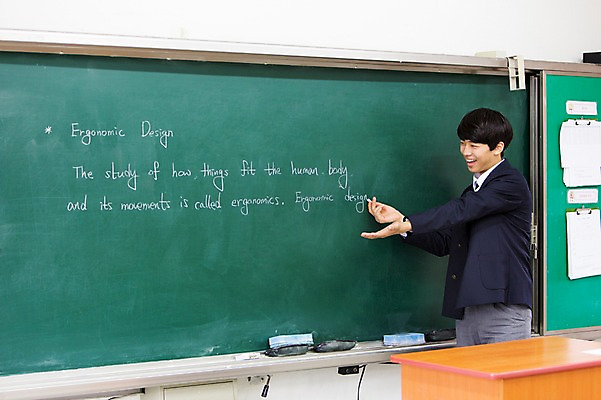 * Ergonomic Design
The study of how things fit the human body
and its movements is called ergonomics. Ergonomic design